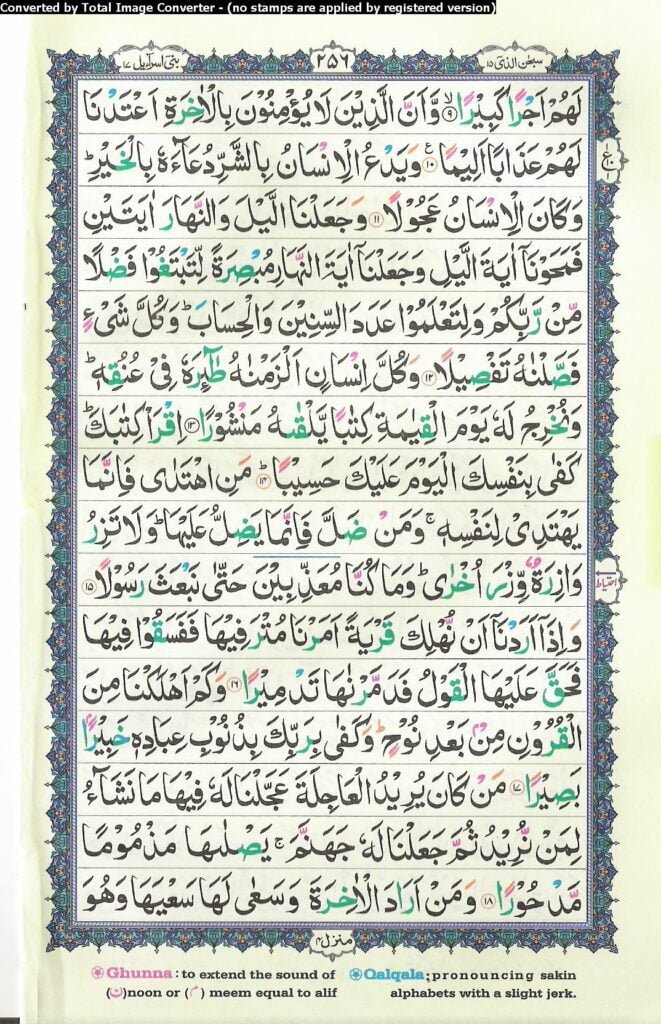 Converted by Total Image Converter - (no stamps are applied by registered version)
سبحٰن الذی ۱۵
۲۵۶
بنی اسرآءیل ۱۷
لَهُمْ اَجْرًا كَبِيْرًا ۙ‏﴿۹﴾ وَّاَنَّ الَّذِيْنَ لَا يُؤْمِنُوْنَ بِالْاٰخِرَةِ اَعْتَدْنَا
لَهُمْ عَذَابًا اَلِيْمًا ﴿۱۰﴾ وَيَدْعُ الْاِنْسَانُ بِالشَّرِّ دُعَآءَهٗ بِالْخَيْرِ ؕ
وَكَانَ الْاِنْسَانُ عَجُوْلًا ﴿۱۱﴾ وَجَعَلْنَا الَّيْلَ وَالنَّهَارَ اٰيَتَيْنِ
فَمَحَوْنَاۤ اٰيَةَ الَّيْلِ وَجَعَلْنَاۤ اٰيَةَ النَّهَارِ مُبْصِرَةً لِّتَبْتَغُوْا فَضْلًا
مِّنْ رَّبِّكُمْ وَلِتَعْلَمُوْا عَدَدَ السِّنِيْنَ وَالْحِسَابَ ؕ وَكُلَّ شَىْءٍ
فَصَّلْنٰهُ تَفْصِيْلًا ﴿۱۲﴾ وَكُلَّ اِنْسَانٍ اَلْزَمْنٰهُ طٰٓئِرَهٗ فِىْ عُنُقِهٖ ؕ
وَنُخْرِجُ لَهٗ يَوْمَ الْقِيٰمَةِ كِتٰبًا يَّلْقٰىهُ مَنْشُوْرًا ﴿۱۳﴾ اِقْرَاْ كِتٰبَكَ ؕ
كَفٰى بِنَفْسِكَ الْيَوْمَ عَلَيْكَ حَسِيْبًا ؕ ﴿۱۴﴾ مَنِ اهْتَدٰى فَاِنَّمَا
يَهْتَدِىْ لِنَفْسِهٖ ۚ وَمَنْ ضَلَّ فَاِنَّمَا يَضِلُّ عَلَيْهَا ؕ وَلَا تَزِرُ
وَازِرَةٌ وِّزْرَ اُخْرٰى ؕ وَمَا كُنَّا مُعَذِّبِيْنَ حَتّٰى نَبْعَثَ رَسُوْلًا ﴿۱۵﴾
وَاِذَاۤ اَرَدْنَاۤ اَنْ نُّهْلِكَ قَرْيَةً اَمَرْنَا مُتْرَفِيْهَا فَفَسَقُوْا فِيْهَا
فَحَقَّ عَلَيْهَا الْقَوْلُ فَدَمَّرْنٰهَا تَدْمِيْرًا ﴿۱۶﴾ وَكَمْ اَهْلَكْنَا مِنَ
الْقُرُوْنِ مِنْۢ بَعْدِ نُوْحٍ ؕ وَكَفٰى بِرَبِّكَ بِذُنُوْبِ عِبَادِهٖ خَبِيْرًۢا
بَصِيْرًا ﴿۱۷﴾ مَنْ كَانَ يُرِيْدُ الْعَاجِلَةَ عَجَّلْنَا لَهٗ فِيْهَا مَا نَشَآءُ
لِمَنْ نُّرِيْدُ ثُمَّ جَعَلْنَا لَهٗ جَهَنَّمَ ۚ يَصْلٰىهَا مَذْمُوْمًا
مَّدْحُوْرًا ﴿۱۸﴾ وَمَنْ اَرَادَ الْاٰخِرَةَ وَسَعٰى لَهَا سَعْيَهَا وَهُوَ
ع
۱
احتیاط
منزل ۴
Ghunna : to extend the sound of
(ن)noon or (م) meem equal to alif
Qalqala; pronouncing sakin
alphabets with a slight jerk.